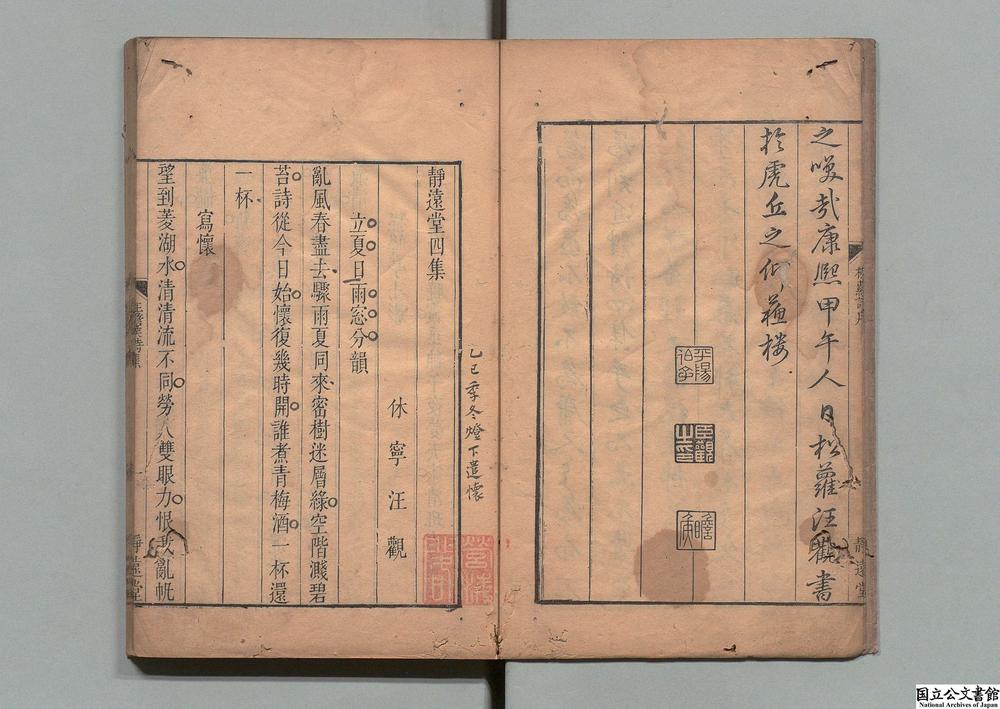 之嘆哉康熙甲午人日松蘿汪觀書
於虎丘之仰蘇樓
靜遠堂
己巳季冬燈下遣懷
靜遠堂四集
休寧汪觀
立夏日雨窓分韻
亂風春盡去驟雨夏同來密樹迷層綠空階濺碧
苔詩從今日始懷復幾時開誰煮青梅酒一杯還
一杯
寫懷
望到菱湖水清清流不同勞人雙眼力恨我亂帆
靜遠堂
国立公文書館
National Archives of Japan